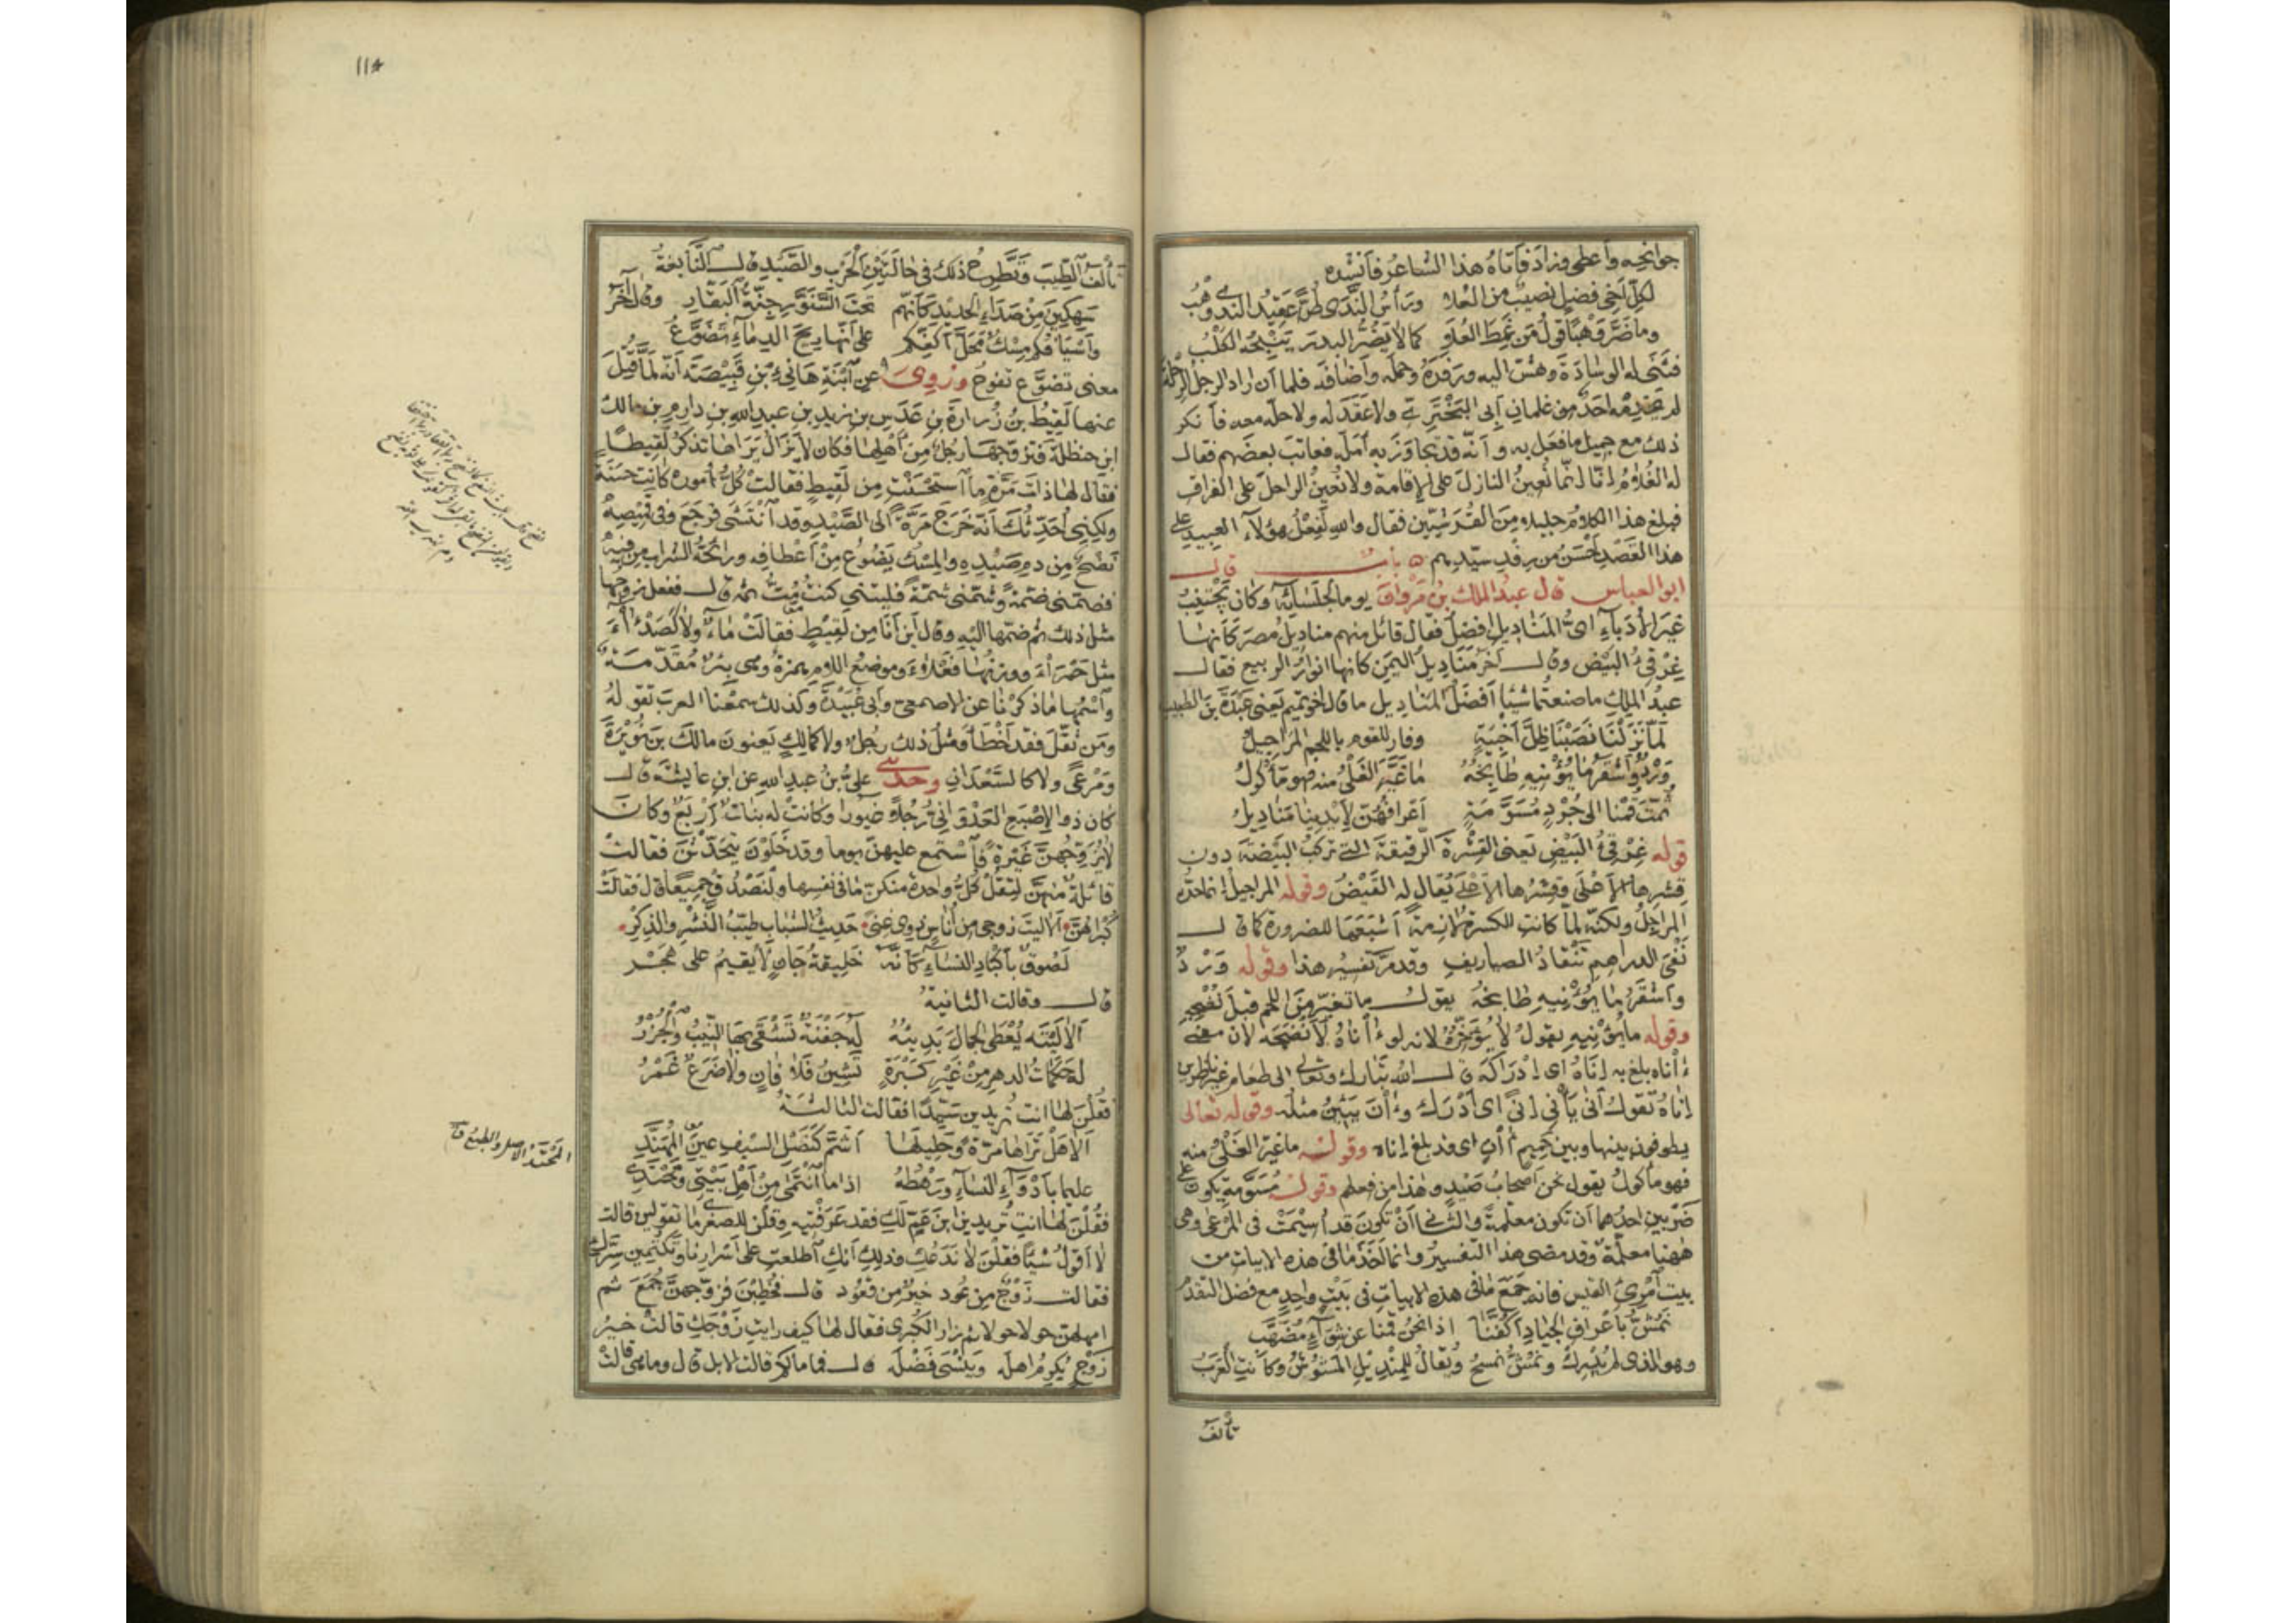 جوانحه وأعطى وزاد فأتاه هذا الشاعر فأنشده
لكل أخي فضل نصيب من العلا ورأس الندى طرا عقيد الندى وهب
وما ضر وهبا قول من غمط العلا كما لا يضر البدر ينبحه الكلب
فثنى له الوسادة وهش إليه ورفده وحمله وأضافه فلما أن أراد الرجل الرحلة
لم يخدمه أحد من غلمان أبي البختري ولا عقد له ولا حل معه فأنكر
ذلك مع جميل ما فعل به وأنه قد تجاوز به أمله فعاتب بعضهم فقال
له الغلام إنا إنما نعين النازل على الإقامة ولا نعين الراحل على الفراق
فبلغ هذا الكلام جليلا من القرشيين فقال والله لفعل هؤلاء العبيد على
هذا القصد أحسن من رفد سيدهم ٥ باب قال
أبو العباس قال عبد الملك بن مروان يوما لجلسائه وكان يجتنب
غير الأدباء أي المناديل أفضل فقال قائل منهم مناديل مصر كأنها
غرقئ البيض وقال آخر مناديل اليمن كأنها أنوار الربيع فقال
عبد الملك ما صنعتما شيئا أفضل المناديل ما قال أخو تميم يعني عبدة بن الطبيب
لما نزلنا نصبنا ظل أخبية وفار للقوم باللحم المراجيل
ورد وأشقر ما يؤنيه طابخه ما غير الغلي منه فهو مأكول
ثمت قمنا إلى جرد مسومة أعرافهن لأيدينا مناديل
قوله غرقئ البيض يعني القشرة الرقيقة التي تركب البيضة دون
قشرها الأعلى وقشرها الأعلى يقال له القيض وقوله المراجيل إنما حده
المراجل ولكنه لما كانت الكسرة لازمة أشبعها للضرورة كما قال
نفي الدراهم تنقاد الصياريف وقد مر تفسير هذا وقوله ورد
وأشقر ما يؤنيه طابخه يقول ما تغير من اللحم قبل نضجه
وقوله ما يؤنيه يقول لا يؤخره لأنه لو آناه لأنضجه لأن معنى
آناه بلغ به إناه أي إدراكه قال الله تبارك وتعالى إلى طعام غير ناظرين
إناه تقول أنى يأني إنى أي أدرك وآن يئين مثله وقوله تعالى
يطوفون بينها وبين حميم آن أي قد بلغ إناه وقوله ما غير الغلي منه
فهو مأكول يقول نحن أصحاب صيد وهذا من فعلهم وقوله مسومة يكون على
ضربين أحدهما أن تكون معلمة والثاني أن تكون قد أسيمت في المرعى وهي
ههنا معلمة وقد مضى هذا التفسير وإنما أخذ ما في هذه الأبيات من
بيت امرئ القيس فإنه جمع ما في هذه الأبيات في بيت واحد مع فضل التقدم
نمش بأعراف الجياد أكفنا إذا نحن قمنا عن شواء مضهب
وهو الذي لم يدرك ونمش نمسح ويقال للمنديل المشوش وكانت العرب
تألف
١١٤
تألف الطيب وتطرح ذلك في حالتين الحرب والصيد قال النابغة
سهكين من صدإ الحديد كأنهم تحت السنور جنة البقار وقال آخر
وأسيافكم مسك محل أكفكم على أنها ريح الدماء تضوع
معنى تضوع تفوح وروي عن ابنة هانئ بن قبيصة أنه لما قتل
عنها لقيط بن زرارة بن عدس بن زيد بن عبد الله بن دارم بن مالك
ابن حنظلة فتزوجها رجل من أهلها فكان لا يزال يراها تذكر لقيطا
فقال لها ذات مرة ما استحسنت من لقيط فقالت كل أموره كانت حسنة
ولكني أحدثك أنه خرج مرة إلى الصيد وقد انتشى فرجع وفي قميصه
نضح من دم صيده والمسك يضوع من أعطافه ورائحة الشراب من فيه
فضمني ضمة وشمني شمة فليتني كنت مت ثمه قال ففعل زوجها
مثل ذلك ثم ضمها إليه وقال أين أنا من لقيط فقالت ماء ولا كصداء
مثل حمراء ووزنها فعلاء وموضع اللام همزة وهي بئر مقدمة
واسمها ما ذكرنا عن الأصمعي وأبي عبيدة وكذلك سمعنا العرب تقوله
ومن ثقل فقد أخطأ ومثل ذلك رجل ولا كمالك يعنون مالك بن نويرة
ومرعى ولا كالسعدان وحدثني علي بن عبد الله عن ابن عائشة قال
كان ذو الإصبع العدواني رجلا غيورا وكانت له بنات أربع وكان
لا يزوجهن غيرة فاستمع عليهن يوما وقد خلون يتحدثن فقالت
قائلة منهن لتقل كل واحدة منكن ما في نفسها ولنصدق جميعا قال فقالت
كبراهن ألا ليت زوجي من أناس ذوي غنى حديث الشباب طيب النشر والذكر
لصوق بأكباد النساء كأنه خليفة جان لا يقيم على هجر
قال وقالت الثانية
ألا ليته يعطى الجمال بديئة له جفنة تشقى بها النيب والجزر
له حكمات الدهر من غير كبرة تشين فلا فان ولا ضرع غمر
فقلن لها أنت تريدين سيدا فقالت الثالثة
ألا هل تراها مرة وحليلها أشم كنصل السيف عين المهند
عليما بأدواء النساء ورهطه إذا ما انتمى من أهل بيتي ومحتدي
فقلن لها أنت تريدين ابن عم لك فقد عرفتيه وقلن للصغرى ما تقولين قالت
لا أقول شيئا فقلن لا ندعك وذلك أنك اطلعت على أسرارنا وتكتمين سرك
فقالت زوج من عود خير من قعود قال فخطبن فزوجهن جمع ثم
أمهلهن حولا ثم زار الكبرى فقال لها كيف رأيت زوجك قالت خير
زوج يكرم أهله وينسى فضله قال فما مالكم قالت الإبل قال وما هي قالت
المحتد الأصل والطبع ق